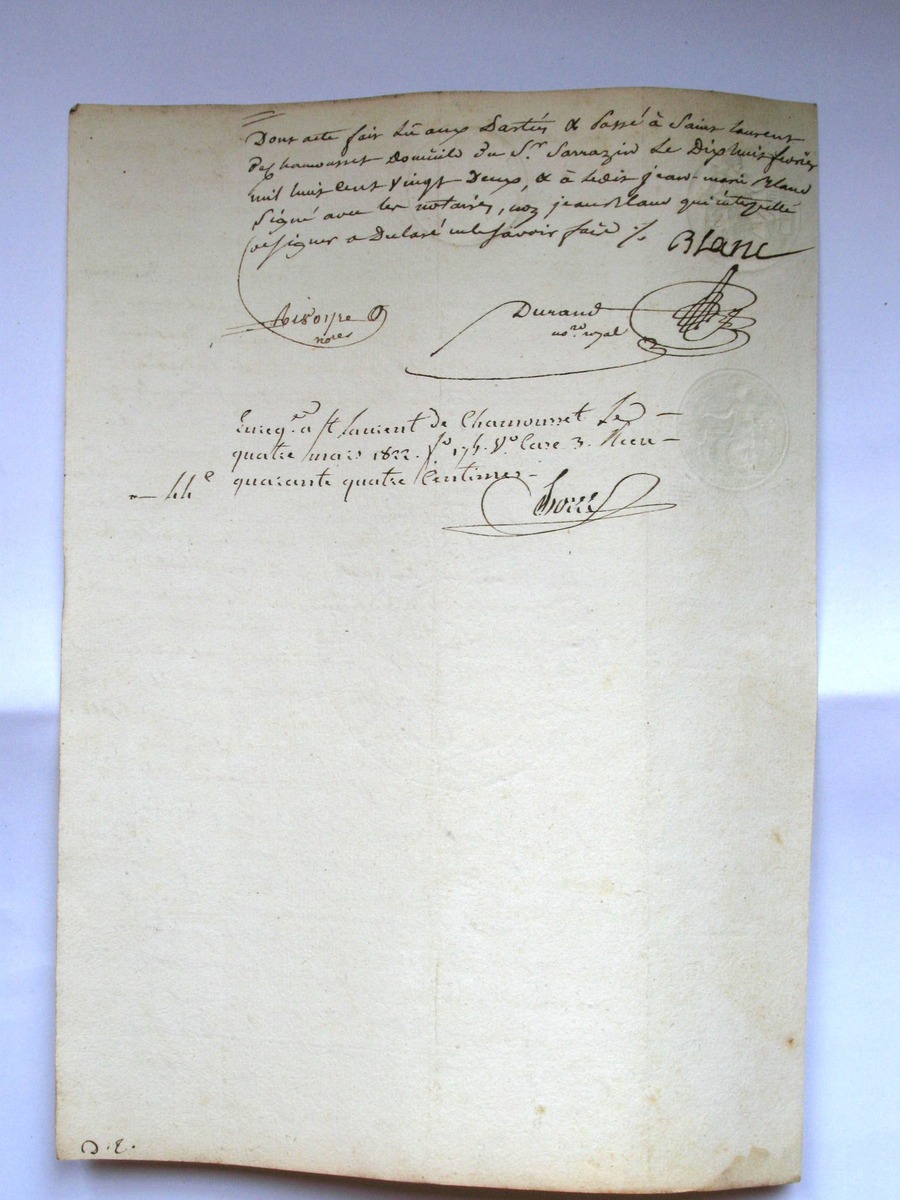 Dont acte fait lu aux Parties & Passé à Saint Laurent
de Chamousset Domicile du Sr. Sarrazin Le Dix huit février
mil huit cent vingt Deux, & à ledit jean-marie Blanc
signé avec les notaires, non jean Blanc qui interpellé
de signer a Déclaré ne le savoir faire ·/.
Blanc
nores
Durand
nore. royal
Enregé. a St Laurent de Chamousset Le
quatre mars 1822. fo 174. Vo Case 3. Recu
quarante quatre Centimes
44c
D.E.